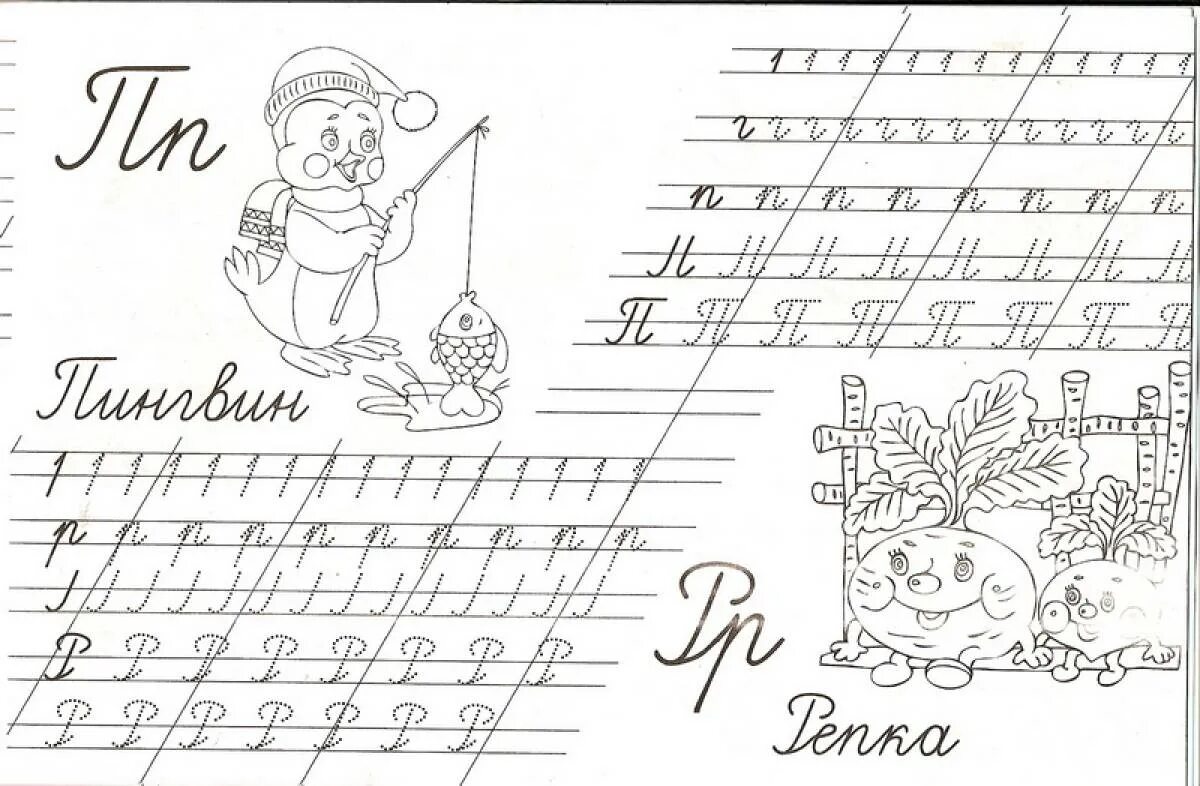 Пп
п п п п п п п п
П П П П П П П П
Пингвин
р р р р р р р р р р
Р Р Р Р Р Р Р Р
Р Р Р Р Р Р Р
Рр
Репка